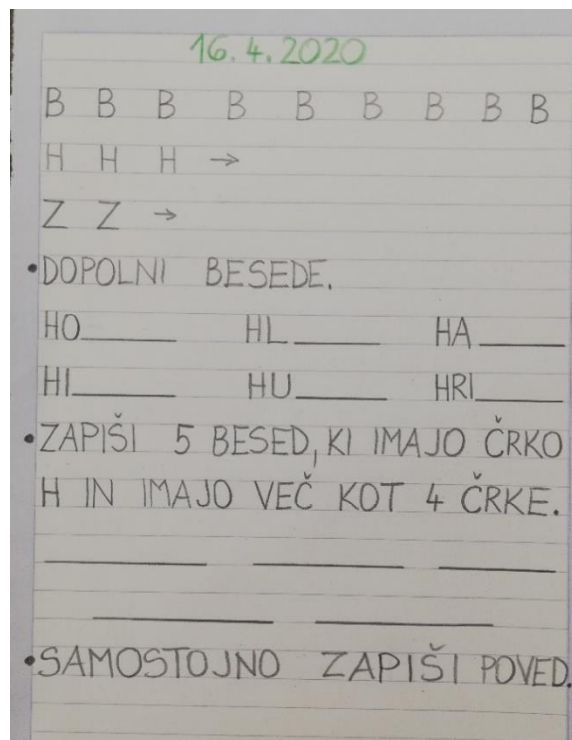 16.4.2020
B B B B B B B B B
H H H →
Z Z →
•DOPOLNI BESEDE.
HO______ HL______ HA______
HI______ HU______ HRI______
•ZAPIŠI 5 BESED, KI IMAJO ČRKO
H IN IMAJO VEČ KOT 4 ČRKE.
•SAMOSTOJNO ZAPIŠI POVED.